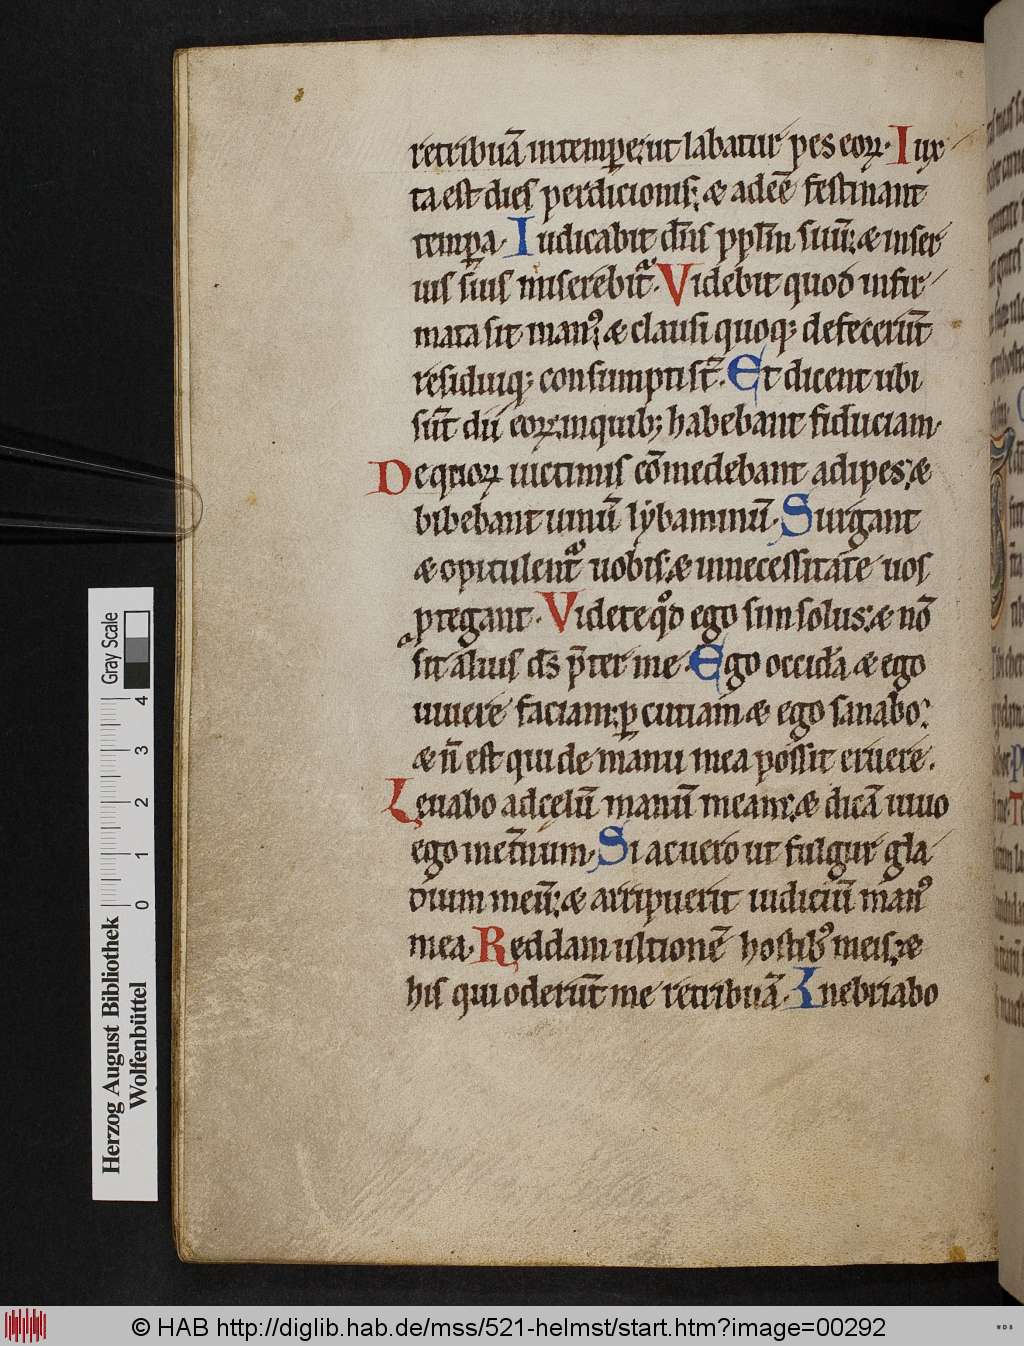 retribuā in temp̄e: ut labatur pes eoꝝ. Iux
ta est dies perdicionis: & adeē festinant
temp̄a. Iudicabit dn̄s pp̄lm suū: & in ser
uis suis miserebit᷑. Videbit quod infir
mata sit manꝰ: & clausi quoq; defecer̄t
residuiq; consumpti st̄. Et dicent ubi
sūt dii eoꝝ: in quib; habebant fiduciam.
De qͥoꝝ uictimis cōmedebant adipes: &
bibebant uinū lybaminū. Surgant
& opitulent᷑ uobis: & in necessitate uos
ꝓtegant. Videte qd̊ ego sim solus: & nō
sit alius ds̄ p̄ter me. Ego occidā & ego
uiuere faciam: ꝑcutiam & ego sanabo:
& n̄ est qui de manu mea possit eruere.
Leuabo ad cęlū manū meam: & dicā uiuo
ego in et̄num. Si acuero ut fulgur gla
dium meū: & arripuerit iudiciū manꝰ
mea. Reddam ultionē hostibꝰ meis: &
his qui oderūt me retribuā. Inebriabo
Herzog August Bibliothek
Wolfenbüttel
0 1 2 3 4
Gray Scale
© HAB http://diglib.hab.de/mss/521-helmst/start.htm?image=00292